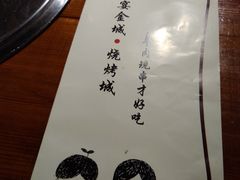 宴金城·烧烤城
肉现串才好吃